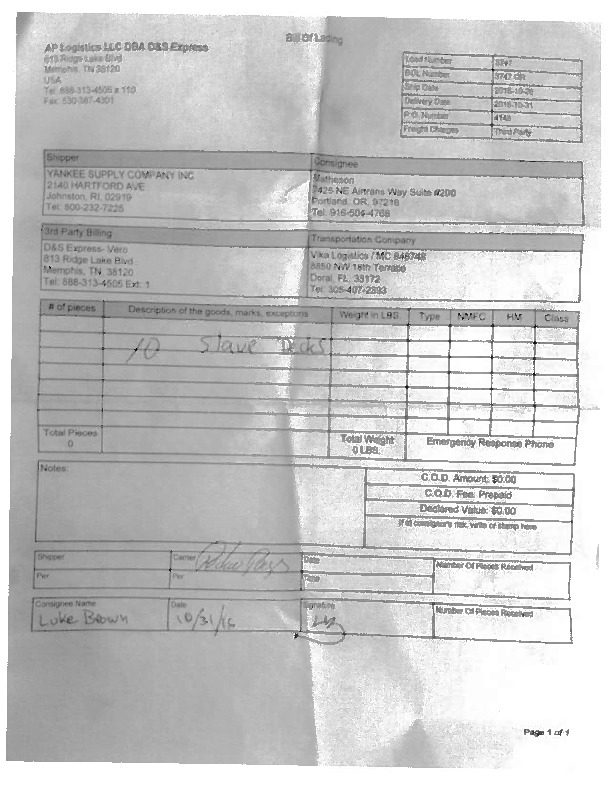 Bill Of Lading
AP Logistics LLC DBA D&S Express
813 Ridge Lake Blvd
Memphis, TN 38120
USA
Tel: 888-313-4505 x 110
Fax: 530-387-4301
Load Number 3747
BOL Number 3747-OR
Ship Date 2016-10-26
Delivery Date 2016-10-31
P.O. Number 4148
Freight Charges Third Party
Shipper
YANKEE SUPPLY COMPANY INC
2140 HARTFORD AVE
Johnston, RI, 02919
Tel: 800-232-7225
Consignee
Matheson
7425 NE Airtrans Way Suite #200
Portland, OR, 97218
Tel: 916-504-4768
3rd Party Billing
D&S Express- Vero
813 Ridge Lake Blvd
Memphis, TN, 38120
Tel: 888-313-4505 Ext: 1
Transportation Company
Vika Logistics / MC 848748
8850 NW 18th Terrace
Doral, FL, 33172
Tel: 305-407-2393
# of pieces Description of the goods, marks, exceptions Weight in LBS. Type NMFC HM Class
10 Slave Decks
Total Pieces
0
Total Weight
0 LBS.
Emergency Response Phone
Notes:
C.O.D. Amount: $0.00
C.O.D. Fee: Prepaid
Declared Value: $0.00
If at consignee's risk, write or stamp here
Shipper Carrier Date Number Of Pieces Received
Per Per Time
Consignee Name Date Signature Number Of Pieces Received
Luke Brown 10/31/16
Page 1 of 1